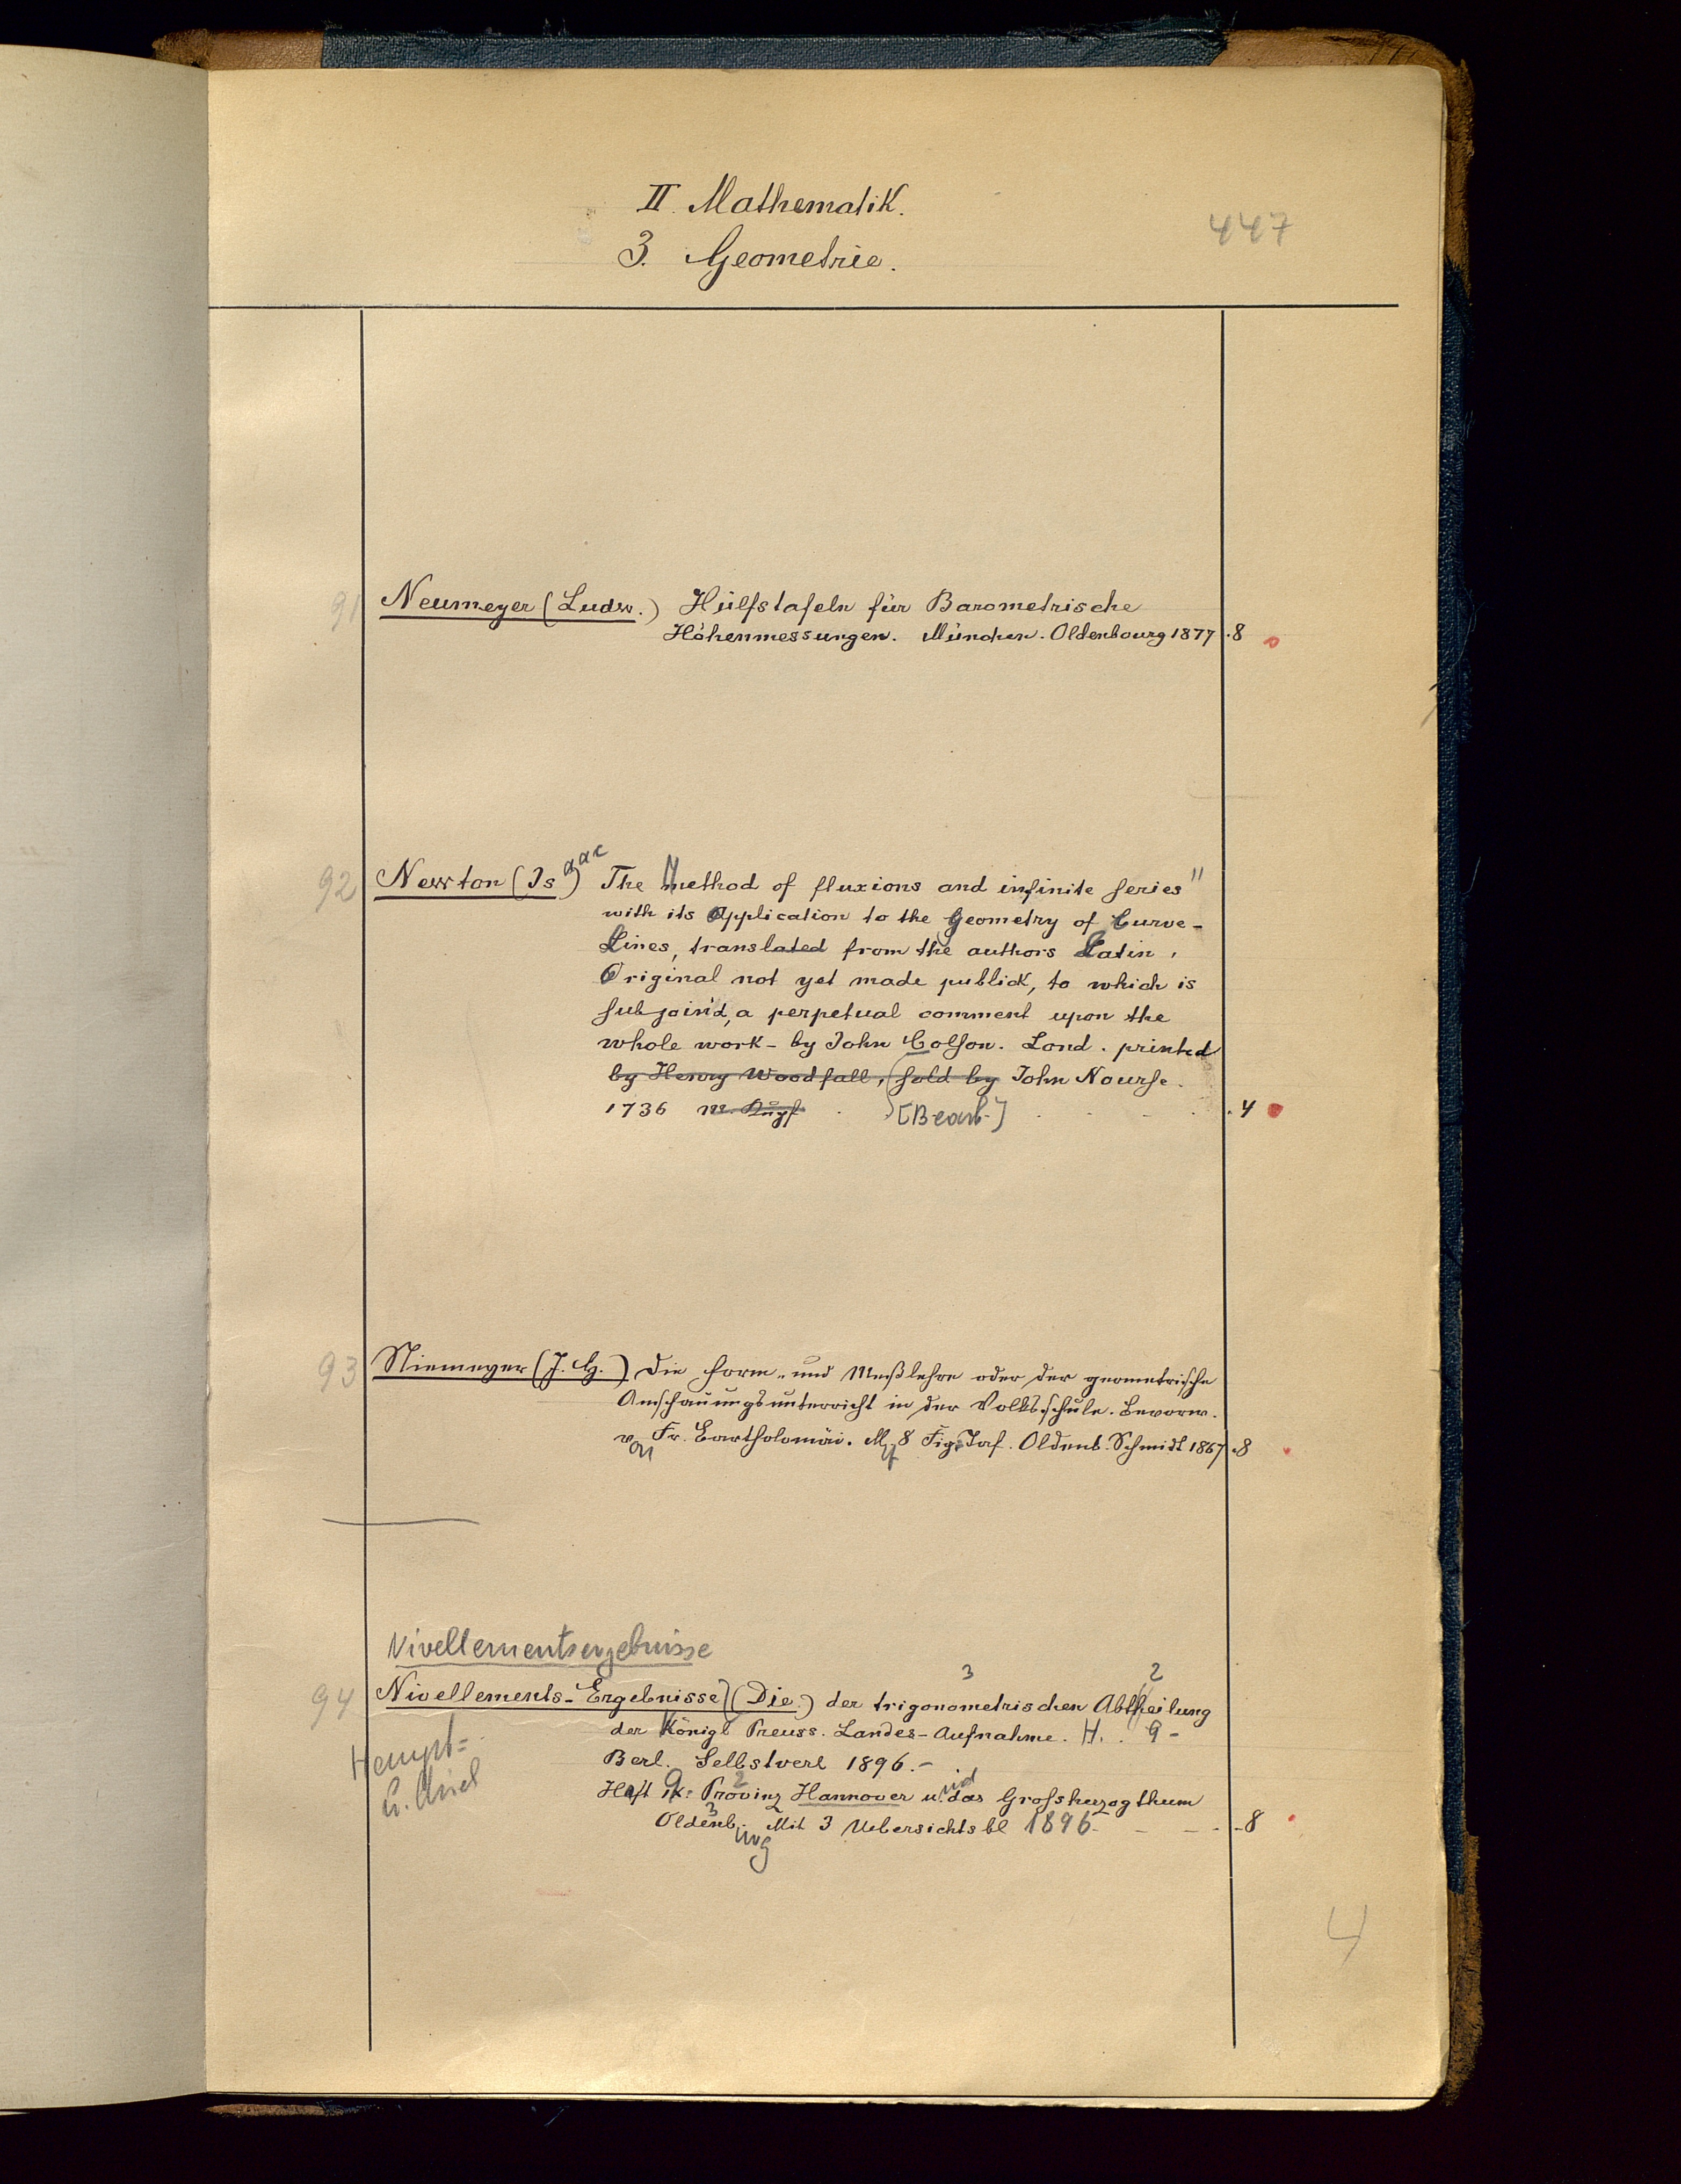 II. Mathematik.
447
3. Geometrie.
91 Neumeyer (Ludw.) Hülfstafeln für Barometrische
Höhenmessungen. München. Oldenbourg 1877 . 8
92 Newton (Isaac) The Method of fluxions and infinite series
with its Application to the Geometry of Curve-
Lines, translated from the authors Latin,
Original not yet made publick, to which is
subjoin'd, a perpetual comment upon the
whole work - by John Colson. Lond. printed
by Henry Woodfall, sold by John Nourse.
1736 [Bearb.] . 4
93 Niemeyer (J. H.) Die Form- und Meßlehre oder der geometrische
Anschauungsunterricht in der Volksschule. Bevorw.
von Fr. Bartholomäi. Mit 8 Fig. Taf. Oldenb. Schmidt 1867 . 8
Nivellementsergebnisse
3 2
94 Nivellements-Ergebnisse (Die) der trigonometrischen Abtheilung
der Königl Preuss. Landes-Aufnahme. H. . 9 -
Haupt=
Berl. Selbstverl 1896. -
Heft 9: Provinz Hannover und das Grossherzogthum
Oldenburg. Mit 3 Uebersichtsbl 1896 - 8
4